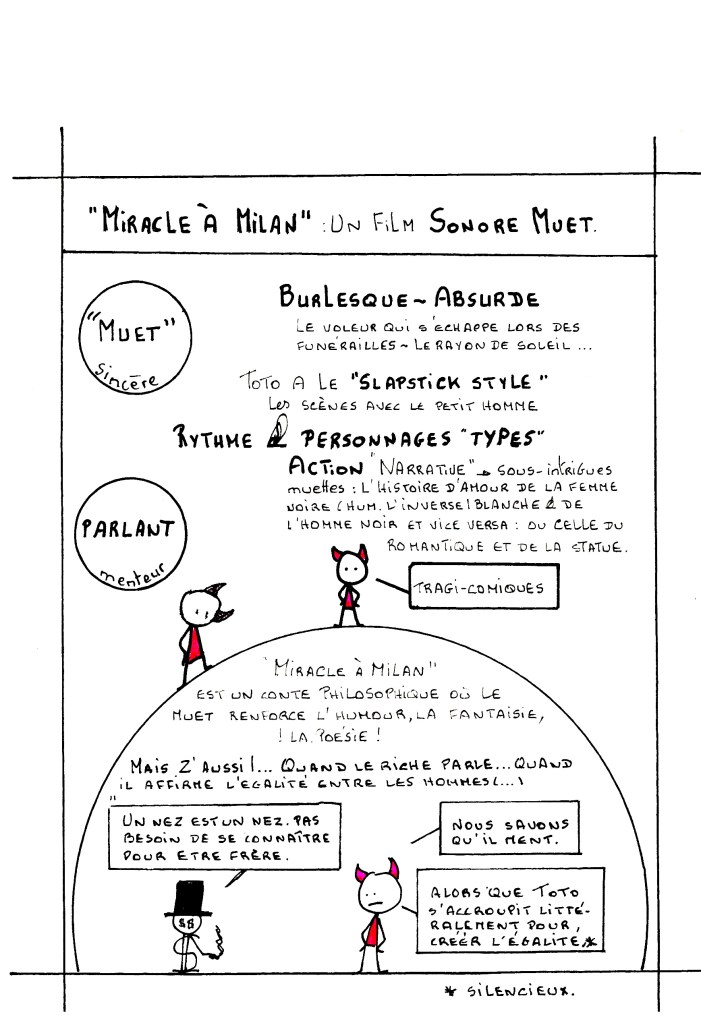 "MIRACLE À MILAN" : UN FILM SONORE MUET.
"MUET"
Sincère
BURLESQUE ~ ABSURDE
LE VOLEUR QUI S'ÉCHAPPE LORS DES
FUNÉRAILLES ~ LE RAYON DE SOLEIL ...
TOTO A LE "SLAPSTICK STYLE"
Les SCÈNES AVEC LE PETIT HOMME
RYTHME & PERSONNAGES "TYPES"
ACTION "NARRATIVE" → SOUS-intrigues
muettes : L'HISTOIRE D'AMOUR DE LA FEMME
NOIRE (HUM. L'INVERSE! BLANCHE & DE
L'HOMME NOIR ET VICE VERSA : OU CELLE DU
ROMANTIQUE ET DE LA STATUE.
PARLANT
menteur
TRAGI-COMIQUES
"MIRACLE À MILAN"
EST UN CONTE PHILOSOPHIQUE OÙ LE
MUET RENFORCE L'HUMOUR, LA FANTAISIE,
! LA POÉSIE !
MAIS Z'AUSSI!... QUAND LE RICHE PARLE... QUAND
IL AFFIRME L'ÉGALITÉ ENTRE LES HOMMES(...)
"
UN NEZ EST UN NEZ. PAS
BESOIN DE SE CONNAÎTRE
POUR ETRE FRÈRE.
NOUS SAVONS
QU'IL MENT.
ALORS QUE TOTO
S'ACCROUPIT LITTÉ-
RALEMENT POUR,
CRÉER L'ÉGALITÉ.*
$$
* SILENCIEUX.